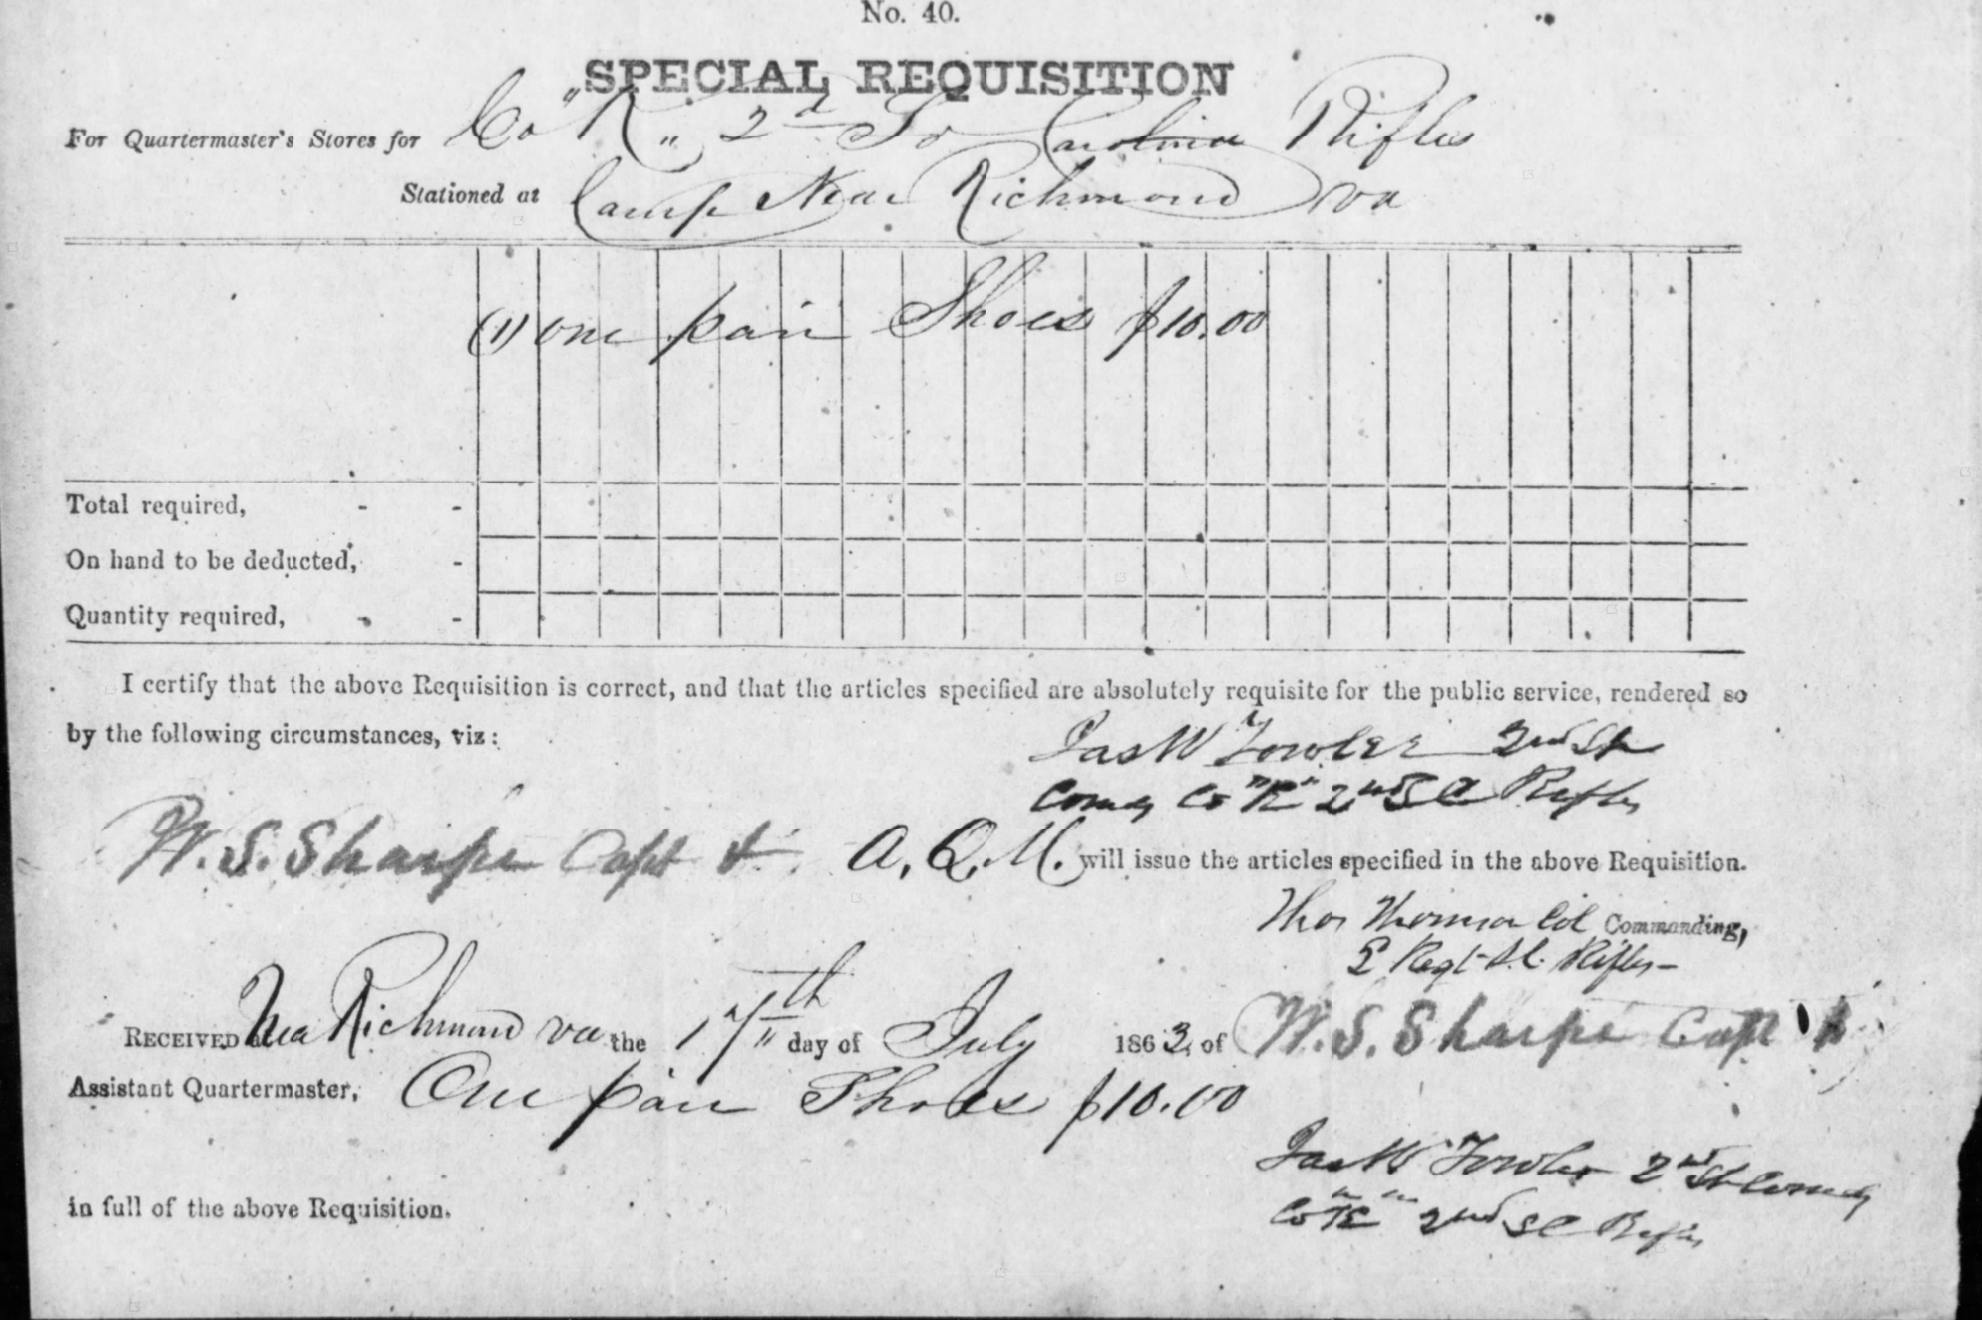 No. 40.
SPECIAL REQUISITION
For Quartermaster's Stores for Co "K" 2d So Carolina Rifles
Stationed at Camp Near Richmond Va
(1) One pair Shoes $10.00
Total required, - -
On hand to be deducted, -
Quantity required, - -
I certify that the above Requisition is correct, and that the articles specified are absolutely requisite for the public service, rendered so
by the following circumstances, viz:
Jas W Fowler 2nd Lt
Comdg Co "K" 2nd SC Rifles
W. S. Sharpe Capt & A. Q. M. will issue the articles specified in the above Requisition.
Thos Thomson Col Commanding,
2 Regt S.C. Rifles
RECEIVED Near Richmond va the 17th day of July 1863, of W. S. Sharpe Capt &
Assistant Quartermaster, One pair Shoes $10.00
Jas W Fowler 2nd Lt Comdg
Co "K" 2nd SC Rifles
in full of the above Requisition.